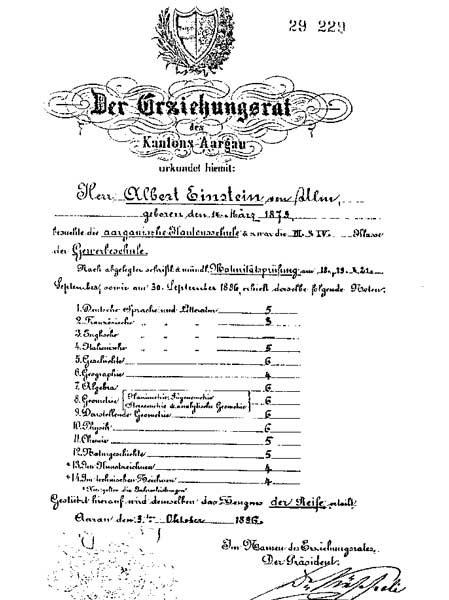 29 229
Der Erziehungsrat
des
Kantons Aargau
urkundet hiermit:
Herr Albert Einstein von Ulm,
geboren den 14. März 1879,
besuchte die aargauische Kantonsschule & zwar die III. & IV. Klasse
der Gewerbeschule.
Nach abgelegter schriftl. & mündl. Maturitätsprüfung am 18., 19. & 21.
September, sowie am 30. September 1896, erhielt derselbe folgende Noten:
1. Deutsche Sprache und Litteratur 5
2. Französische „ „ „ 3
3. Englische „ „ „ —
4. Italienische „ „ „ 5
5. Geschichte 6
6. Geographie 4
7. Algebra 6
8. Geometrie { Planimetrie, Trigonometrie 6
Stereometrie & analytische Geometrie }
9. Darstellende Geometrie 6
10. Physik 6
11. Chemie 5
12. Naturgeschichte 5
*13. Im Kunstzeichnen 4
*14. Im technischen Zeichnen 4
* Hier gelten die Jahresleistungen.
Gestützt hierauf wird demselben das Zeugnis der Reife erteilt.
Aarau den 3ten Oktober 1896.
Im Namen des Erziehungsrates,
Der Präsident: